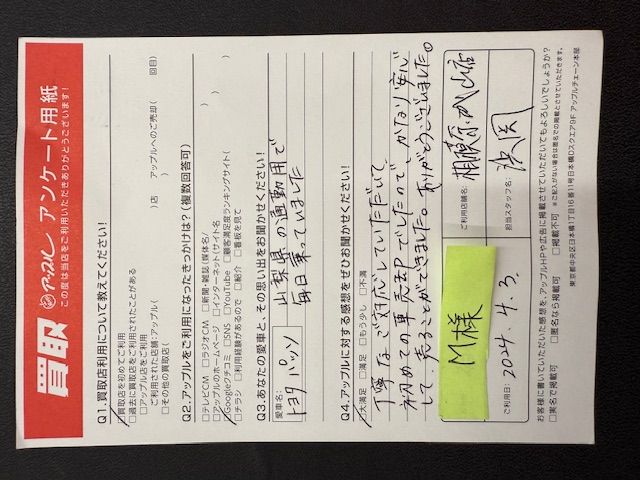 買取 アップル アンケート用紙
この度は当店をご利用いただきありがとうございます!
Q1.買取店利用について教えてください!
□買取店を初めてご利用
□過去に買取店をご利用されたことがある
□アップル店をご利用
ご利用された店舗:アップル( )店 アップルへのご売却( 回目)
□その他の買取店( )
Q2.アップルをご利用になったきっかけは?(複数回答可)
□テレビCM □ラジオCM □新聞・雑誌(媒体名/ )
□アップルのホームページ □インターネット(サイト名 )
□Googleクチコミ □SNS □YouTube □顧客満足度ランキングサイト( )
□チラシ □利用経験があるので □紹介 □看板を見て
Q3.あなたの愛車と、その思い出をお聞かせください!
愛車名:
トヨタ パッソ
山梨県の通勤用で
毎日乗っていました
Q4.アップルに対する感想をぜひお聞かせください!
□大満足 □満足 □もう少し □不満
丁寧なご対応していただいて
初めての車売却でしたので、かなり安心
して、売ることができました。ありがとうございました。
M様
ご利用店舗名:
相模原 店
担当スタッフ名:
浜岡
ご利用日: 2024. 4. 3.
お客様に書いていただいた感想を、アップルHPや広告に掲載させていただいてもよろしいでしょうか?
□実名で掲載可 □匿名なら掲載可 □掲載不可 ※ご記入がない場合は匿名での掲載とさせていただきます。
東京都中央区日本橋1丁目16番11号日本橋Dスクエア9F アップルチェーン本部